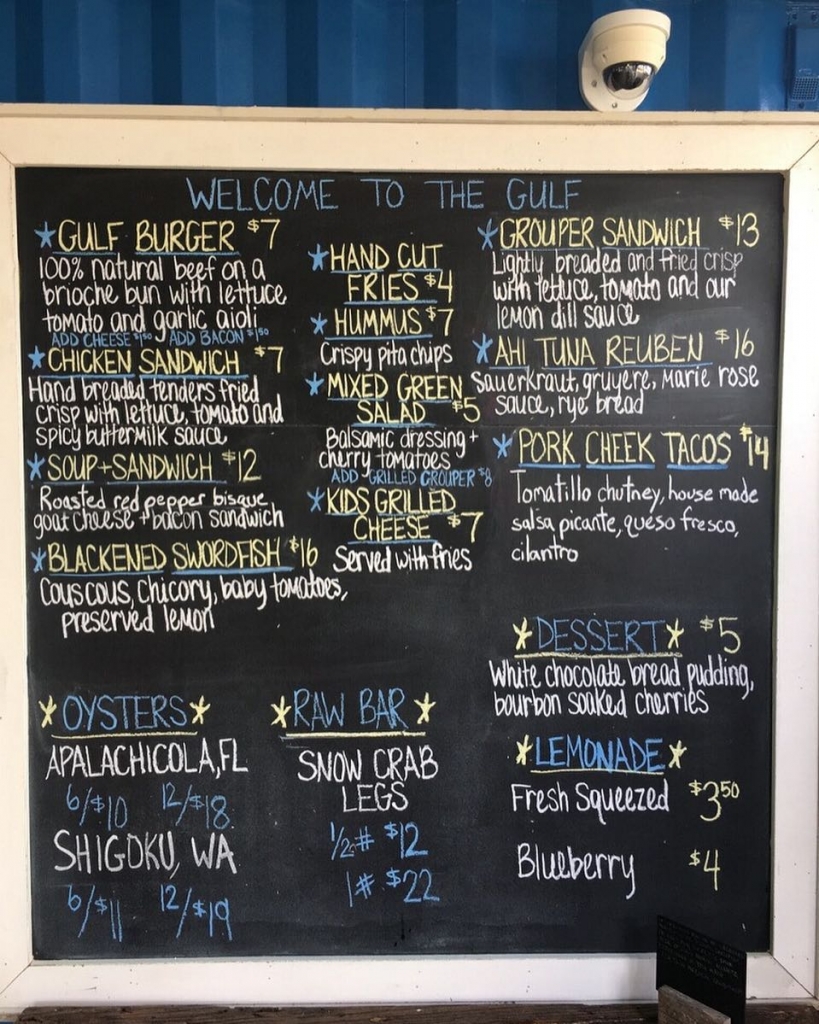 WELCOME TO THE GULF
GULF BURGER $7
100% natural beef on a
brioche bun with lettuce
tomato and garlic aioli
ADD CHEESE $1.50 ADD BACON $1.50
CHICKEN SANDWICH $7
Hand breaded tenders fried
crisp with lettuce, tomato and
spicy buttermilk sauce
SOUP+SANDWICH $12
Roasted red pepper bisque
goat cheese + bacon sandwich
BLACKENED SWORDFISH $16
Couscous, chicory, baby tomatoes,
preserved lemon
HAND CUT
FRIES $4
HUMMUS $7
Crispy pita chips
MIXED GREEN
SALAD $5
Balsamic dressing +
cherry tomatoes
ADD GRILLED GROUPER $8
KIDS GRILLED
CHEESE $7
Served with fries
GROUPER SANDWICH $13
Lightly breaded and fried crisp
with lettuce, tomato and our
lemon dill sauce
AHI TUNA REUBEN $16
Sauerkraut, gruyere, Marie rose
sauce, rye bread
PORK CHEEK TACOS $14
Tomatillo chutney, house made
salsa picante, queso fresco,
cilantro
DESSERT $5
White chocolate bread pudding,
bourbon soaked cherries
LEMONADE
Fresh Squeezed $3.50
Blueberry $4
OYSTERS
APALACHICOLA, FL
6/$10 12/$18
SHIGOKU, WA
6/$11 12/$19
RAW BAR
SNOW CRAB
LEGS
1/2# $12
1# $22